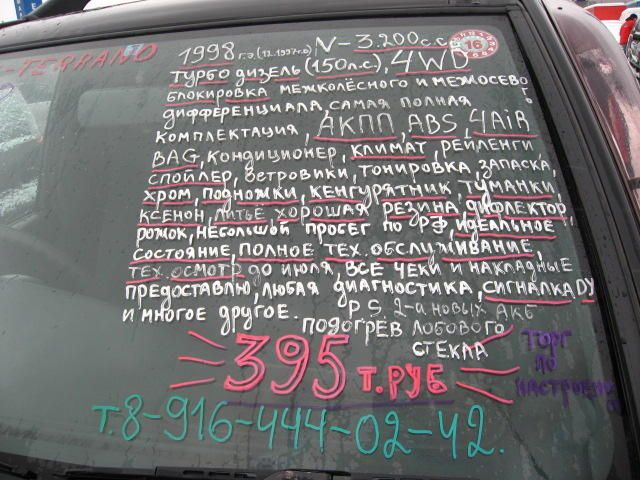 -TERRANO
1998 г.э.(12.1997г.о), V-3.200 с.с
16
ТУРБО ДИЗЕЛЬ (150Л.С), 4WD
БЛОКИРОВКА МЕЖКОЛЁСНОГО И МЕЖОСЕВОГО
ДИФФЕРЕНЦИАЛА, САМАЯ ПОЛНАЯ
КОМПЛЕКТАЦИЯ, АКПП, ABS, 4AiR
BAG, КОНДИЦИОНЕР, КЛИМАТ, РЕЙЛЕНГИ
СПОЙЛЕР, ВЕТРОВИКИ, ТОНИРОВКА, ЗАПАСКА,
ХРОМ, ПОДНОЖКИ, КЕНГУРЯТНИК, ТУМАНКИ,
КСЕНОН, ЛИТЬЁ ХОРОШАЯ РЕЗИНА, ДИФЛЕКТОР,
РОЖОК, НЕБОЛЬШОЙ ПРОБЕГ ПО РФ, ИДЕАЛЬНОЕ
СОСТОЯНИЕ, ПОЛНОЕ ТЕХ. ОБСЛУЖИВАНИЕ,
ТЕХ. ОСМОТР ДО ИЮЛЯ, ВСЕ ЧЕКИ И НАКЛАДНЫЕ
ПРЕДОСТАВЛЮ, ЛЮБАЯ ДИАГНОСТИКА, СИГНАЛКА ДУ
И МНОГОЕ ДРУГОЕ. P.S. 2-а НОВЫХ АКБ
ПОДОГРЕВ ЛОБОВОГО
СТЕКЛА
395 Т.РУБ
ТОРГ
ПО
НАСТРОЕНИЮ
Т.8-916-444-02-42.